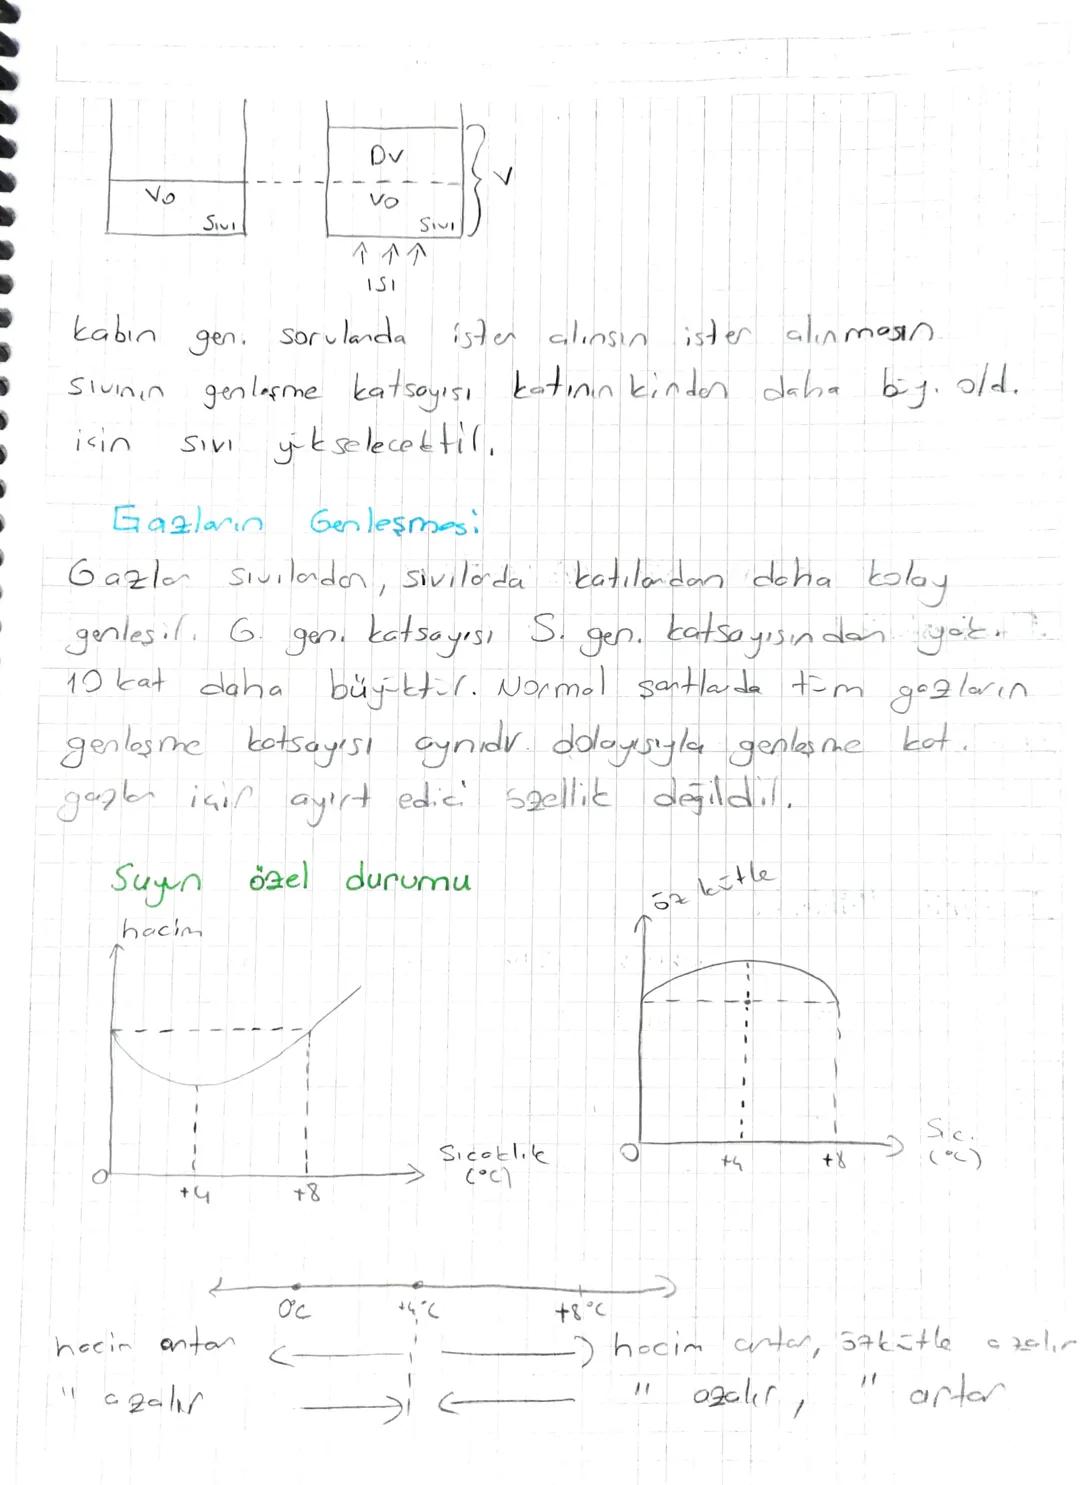 V0
Sıvı
DV
V0
Sıvı
V
ISI
kabın gen. sorularıda ister alınsın ister alınmasın
sıvının genleşme katsayısı katınınkinden daha büy. old.
için sıvı yükselecektir.
Gazların Genleşmesi
Gazlar sıvılardan, sıvılarda katılardan daha kolay
genleşir. G. gen. katsayısı S. gen. katsayısından yak.
10 kat daha büyüktür. Normal şartlarda tüm gazların
genleşme katsayısı aynıdır. dolayısıyla genleşme kat.
gazlar için ayırt edici özellik değildir.
Suyun özel durumu
hacim
Sıcaklık
(°C)
0
+4
+8
özkütle
Sıc.
(°C)
0
+4
+8
0°C
+4°C
+8°C
hacim artar
hacim artar, özkütle azalır
" azalır
" azalır, " artar